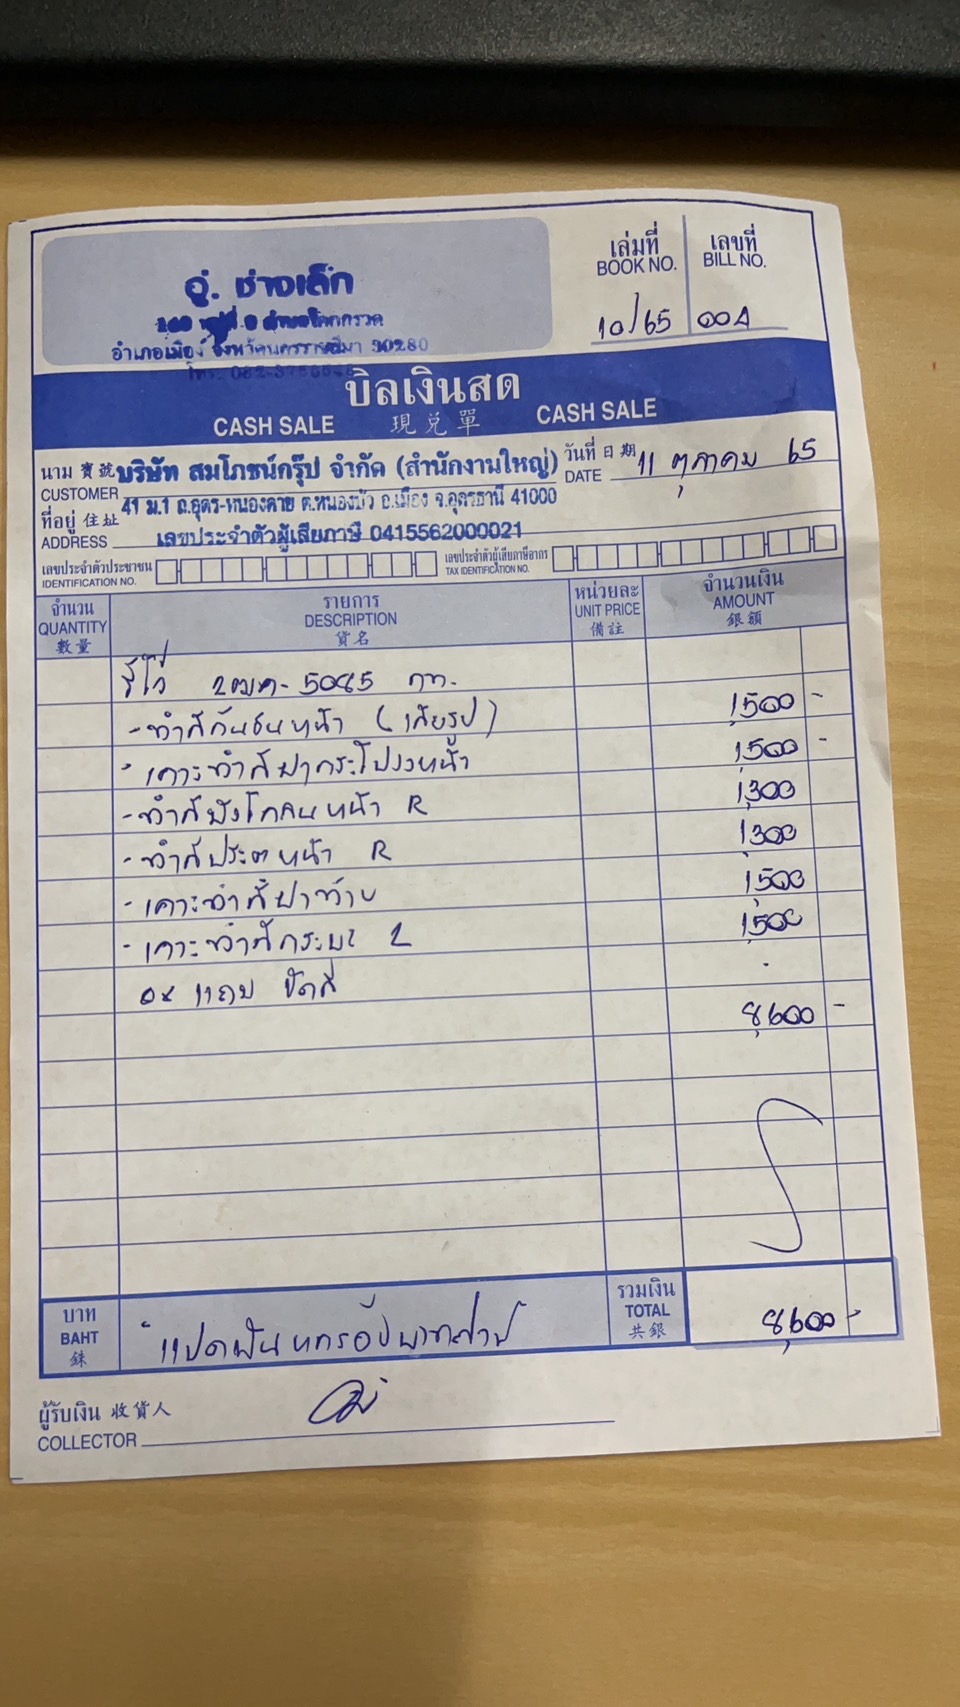 อู่. ช่างเล็ก
อำเภอเมือง จังหวัดนครราชสีมา 30280
เล่มที่ เลขที่
BOOK NO. BILL NO.
10/65 004
บิลเงินสด
CASH SALE 現兌單 CASH SALE
นาม 寶號 บริษัท สมโภชน์กรุ๊ป จำกัด (สำนักงานใหญ่) วันที่ 日期 11 ตุลาคม 65
CUSTOMER 41 ม.1 ถ.อุดร-หนองคาย ต.หนองบัว อ.เมือง จ.อุดรธานี 41000 DATE
ที่อยู่ 住址 เลขประจำตัวผู้เสียภาษี 0415562000021
ADDRESS
เลขประจำตัวประชาชน เลขประจำตัวผู้เสียภาษีอากร
IDENTIFICATION NO. TAX IDENTIFICATION NO.
จำนวน รายการ หน่วยละ จำนวนเงิน
QUANTITY DESCRIPTION UNIT PRICE AMOUNT
數量 貨名 備註 銀額
รีโว่ 2ฒฅ-5085 กท.
- ทำสีกันชนหน้า (เสียรูป) 1,500 -
- เคาะทำสีฝากระโปรงหน้า 1,500 -
- ทำสีบังโคลนหน้า R 1,300
- ทำสีประตูหน้า R 1,300
- เคาะทำสีฝาท้าย 1,500
- เคาะทำสีกระบะ L 1,500
แถม ขัดสี
8,600 -
บาท รวมเงิน
BAHT แปดพันหกร้อยบาทถ้วน TOTAL 8,600 -
銖 共銀
ผู้รับเงิน 收貨人
COLLECTOR